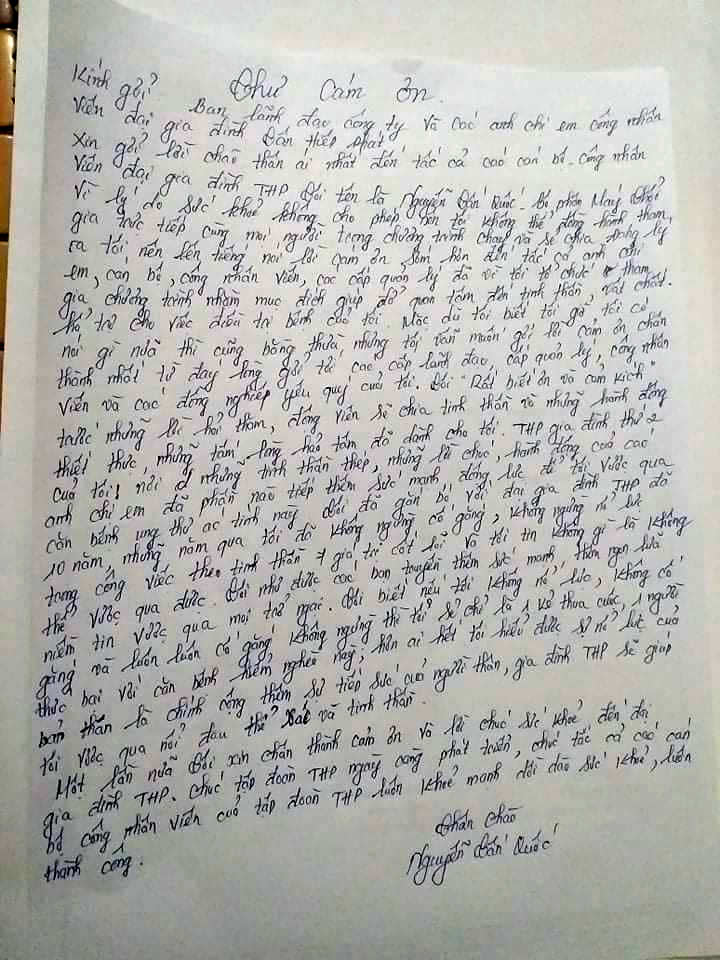 Thư cám ơn.
Kính gửi
Ban lãnh đạo công ty và các anh chị em công nhân
viên đại gia đình Tân Hiệp Phát
Xin gửi lời chào thân ái nhất đến tất cả các cán bộ - công nhân
viên đại gia đình THP. Tôi tên là Nguyễn Tấn Quốc - bộ phận Máy Thổi
Vì lý do sức khoẻ không cho phép nên tôi không thể đồng hành tham
gia trực tiếp cùng mọi người trong chương trình chạy và sẻ chia
ra tôi, nên lên tiếng nói lời cảm ơn sớm hơn đến tất cả anh chị
em, cán bộ, công nhân viên, các cấp quản lý đã vì tôi tổ chức tham
gia chương trình nhằm mục đích giúp đỡ quan tâm đến tinh thần, vật chất.
hỗ trợ cho việc điều trị bệnh của tôi. Mặc dù tôi biết tôi có
nói gì nữa thì cũng bằng thừa, nhưng tôi vẫn muốn gửi lời cảm ơn chân
thành nhất từ đáy lòng gửi tới các cấp lãnh đạo, cấp quản lý, công nhân
viên và các đồng nghiệp yêu quý của tôi. Tôi "Rất biết ơn và cảm kích"
trước những lời hỏi thăm, động viên sẻ chia tinh thần và những hành động
thiết thực, những tấm lòng hảo tâm đã dành cho tôi. THP gia đình thứ 2
của tôi! nơi có những tinh thần thép, những lời chúc, hành động của các
anh chị em đã phần nào tiếp thêm sức mạnh động lực để tôi vượt qua
căn bệnh ung thư ác tính này. Tôi đã gắn bó với đại gia đình THP đã
10 năm, những năm qua tôi đã không ngừng cố gắng, không ngừng nổ lực
trong công việc theo tinh thần 7 giá trị cốt lõi và tôi tin không gì là không
thể vượt qua được. Tôi như được các bạn truyền thêm sức mạnh, thêm ngọn lửa
niềm tin vượt qua mọi trở ngại. Tôi biết nếu tôi không nổ lực, không cố
gắng và luôn luôn cố gắng không ngừng thì tôi sẽ chỉ là 1 kẻ thua cuộc, 1 người
thức bại với căn bệnh hiểm nghèo này, hơn ai hết tôi hiểu được sự nổ lực của
bản thân là chính cộng thêm sự tiếp sức của người thân, gia đình THP sẽ giúp
tôi vượt qua nổi đau thể xác và tinh thần.
Một lần nữa Tôi xin chân thành cảm ơn và lời chúc sức khoẻ đến đại
gia đình THP. Chúc tập đoàn THP ngày càng phát triển, chúc tất cả các cán
bộ công nhân viên của tập đoàn THP luôn khoẻ mạnh dồi dào sức khoẻ, luôn
thành công.
Chân chào
Nguyễn Tấn Quốc